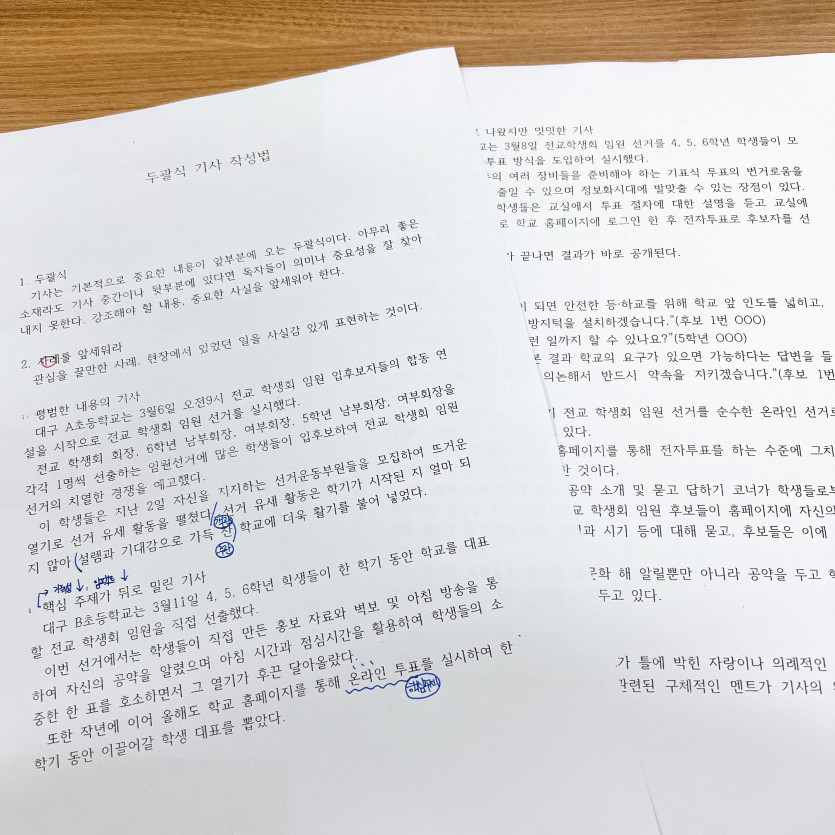 두괄식 기사 작성법
1. 두괄식
기사는 기본적으로 중요한 내용이 앞부분에 오는 두괄식이다. 아무리 좋은
소재라도 기사 중간이나 뒷부분에 있다면 독자들이 의미나 중요성을 잘 찾아
내지 못한다. 강조해야 할 내용, 중요한 사실을 앞세워야 한다.
2. 사례를 앞세워라
관심을 끌만한 사례. 현장에서 있었던 일을 사실감 있게 표현하는 것이다.
평범한 내용의 기사
대구 A초등학교는 3월6일 오전9시 전교 학생회 임원 입후보자들의 합동 연
설을 시작으로 전교 학생회 임원 선거를 실시했다.
전교 학생회 회장, 6학년 남부회장, 여부회장, 5학년 남부회장, 여부회장을
각각 1명씩 선출하는 임원선거에 많은 학생들이 입후보하여 전교 학생회 임원
선거의 치열한 경쟁을 예고했다.
이 학생들은 지난 2일 자신을 지지하는 선거운동부원들을 모집하여 뜨거운
열기로 선거 유세 활동을 펼쳤다. 선거 유세 활동은 학기가 시작된 지 얼마 되
지 않아 설렘과 기대감으로 가득 찬 학교에 더욱 활기를 불어 넣었다.
주관
핵심 주제가 뒤로 밀린 기사
대구 B초등학교는 3월11일 4, 5, 6학년 학생들이 한 학기 동안 학교를 대표
할 전교 학생회 임원을 직접 선출했다.
이번 선거에서는 학생들이 직접 만든 홍보 자료와 벽보 및 아침 방송을 통
하여 자신의 공약을 알렸으며 아침 시간과 점심시간을 활용하여 학생들의 소
중한 한 표를 호소하면서 그 열기가 후끈 달아올랐다.
또한 작년에 이어 올해도 학교 홈페이지를 통해 온라인 투표를 실시하여 한
핵심주제
학기 동안 이끌어갈 학생 대표를 뽑았다.
나왔지만 밋밋한 기사
교는 3월8일 전교학생회 임원 선거를 4, 5, 6학년 학생들이 모
투표 방식을 도입하여 실시했다.
의 여러 장비들을 준비해야 하는 기표식 투표의 번거로움을
줄일 수 있으며 정보화시대에 발맞출 수 있는 장점이 있다.
학생들은 교실에서 투표 절차에 대한 설명을 듣고 교실에
로 학교 홈페이지에 로그인 한 후 전자투표로 후보자를 선
가 끝나면 결과가 바로 공개된다.
이 되면 안전한 등·하교를 위해 학교 앞 인도를 넓히고,
방지턱을 설치하겠습니다."(후보 1번 OOO)
런 일까지 할 수 있나요?"(5학년 OOO)
본 결과 학교의 요구가 있으면 가능하다는 답변을 들
의논해서 반드시 약속을 지키겠습니다."(후보 1번
전교 학생회 임원 선거를 순수한 온라인 선거로
있다.
홈페이지를 통해 전자투표를 하는 수준에 그치
한 것이다.
공약 소개 및 묻고 답하기 코너가 학생들로부
교 학생회 임원 후보들이 홈페이지에 자신의
과 시기 등에 대해 묻고, 후보들은 이에
문화 해 알릴뿐만 아니라 공약을 두고
두고 있다.
가 틀에 박힌 자랑이나 의례적인
관련된 구체적인 멘트가 기사의